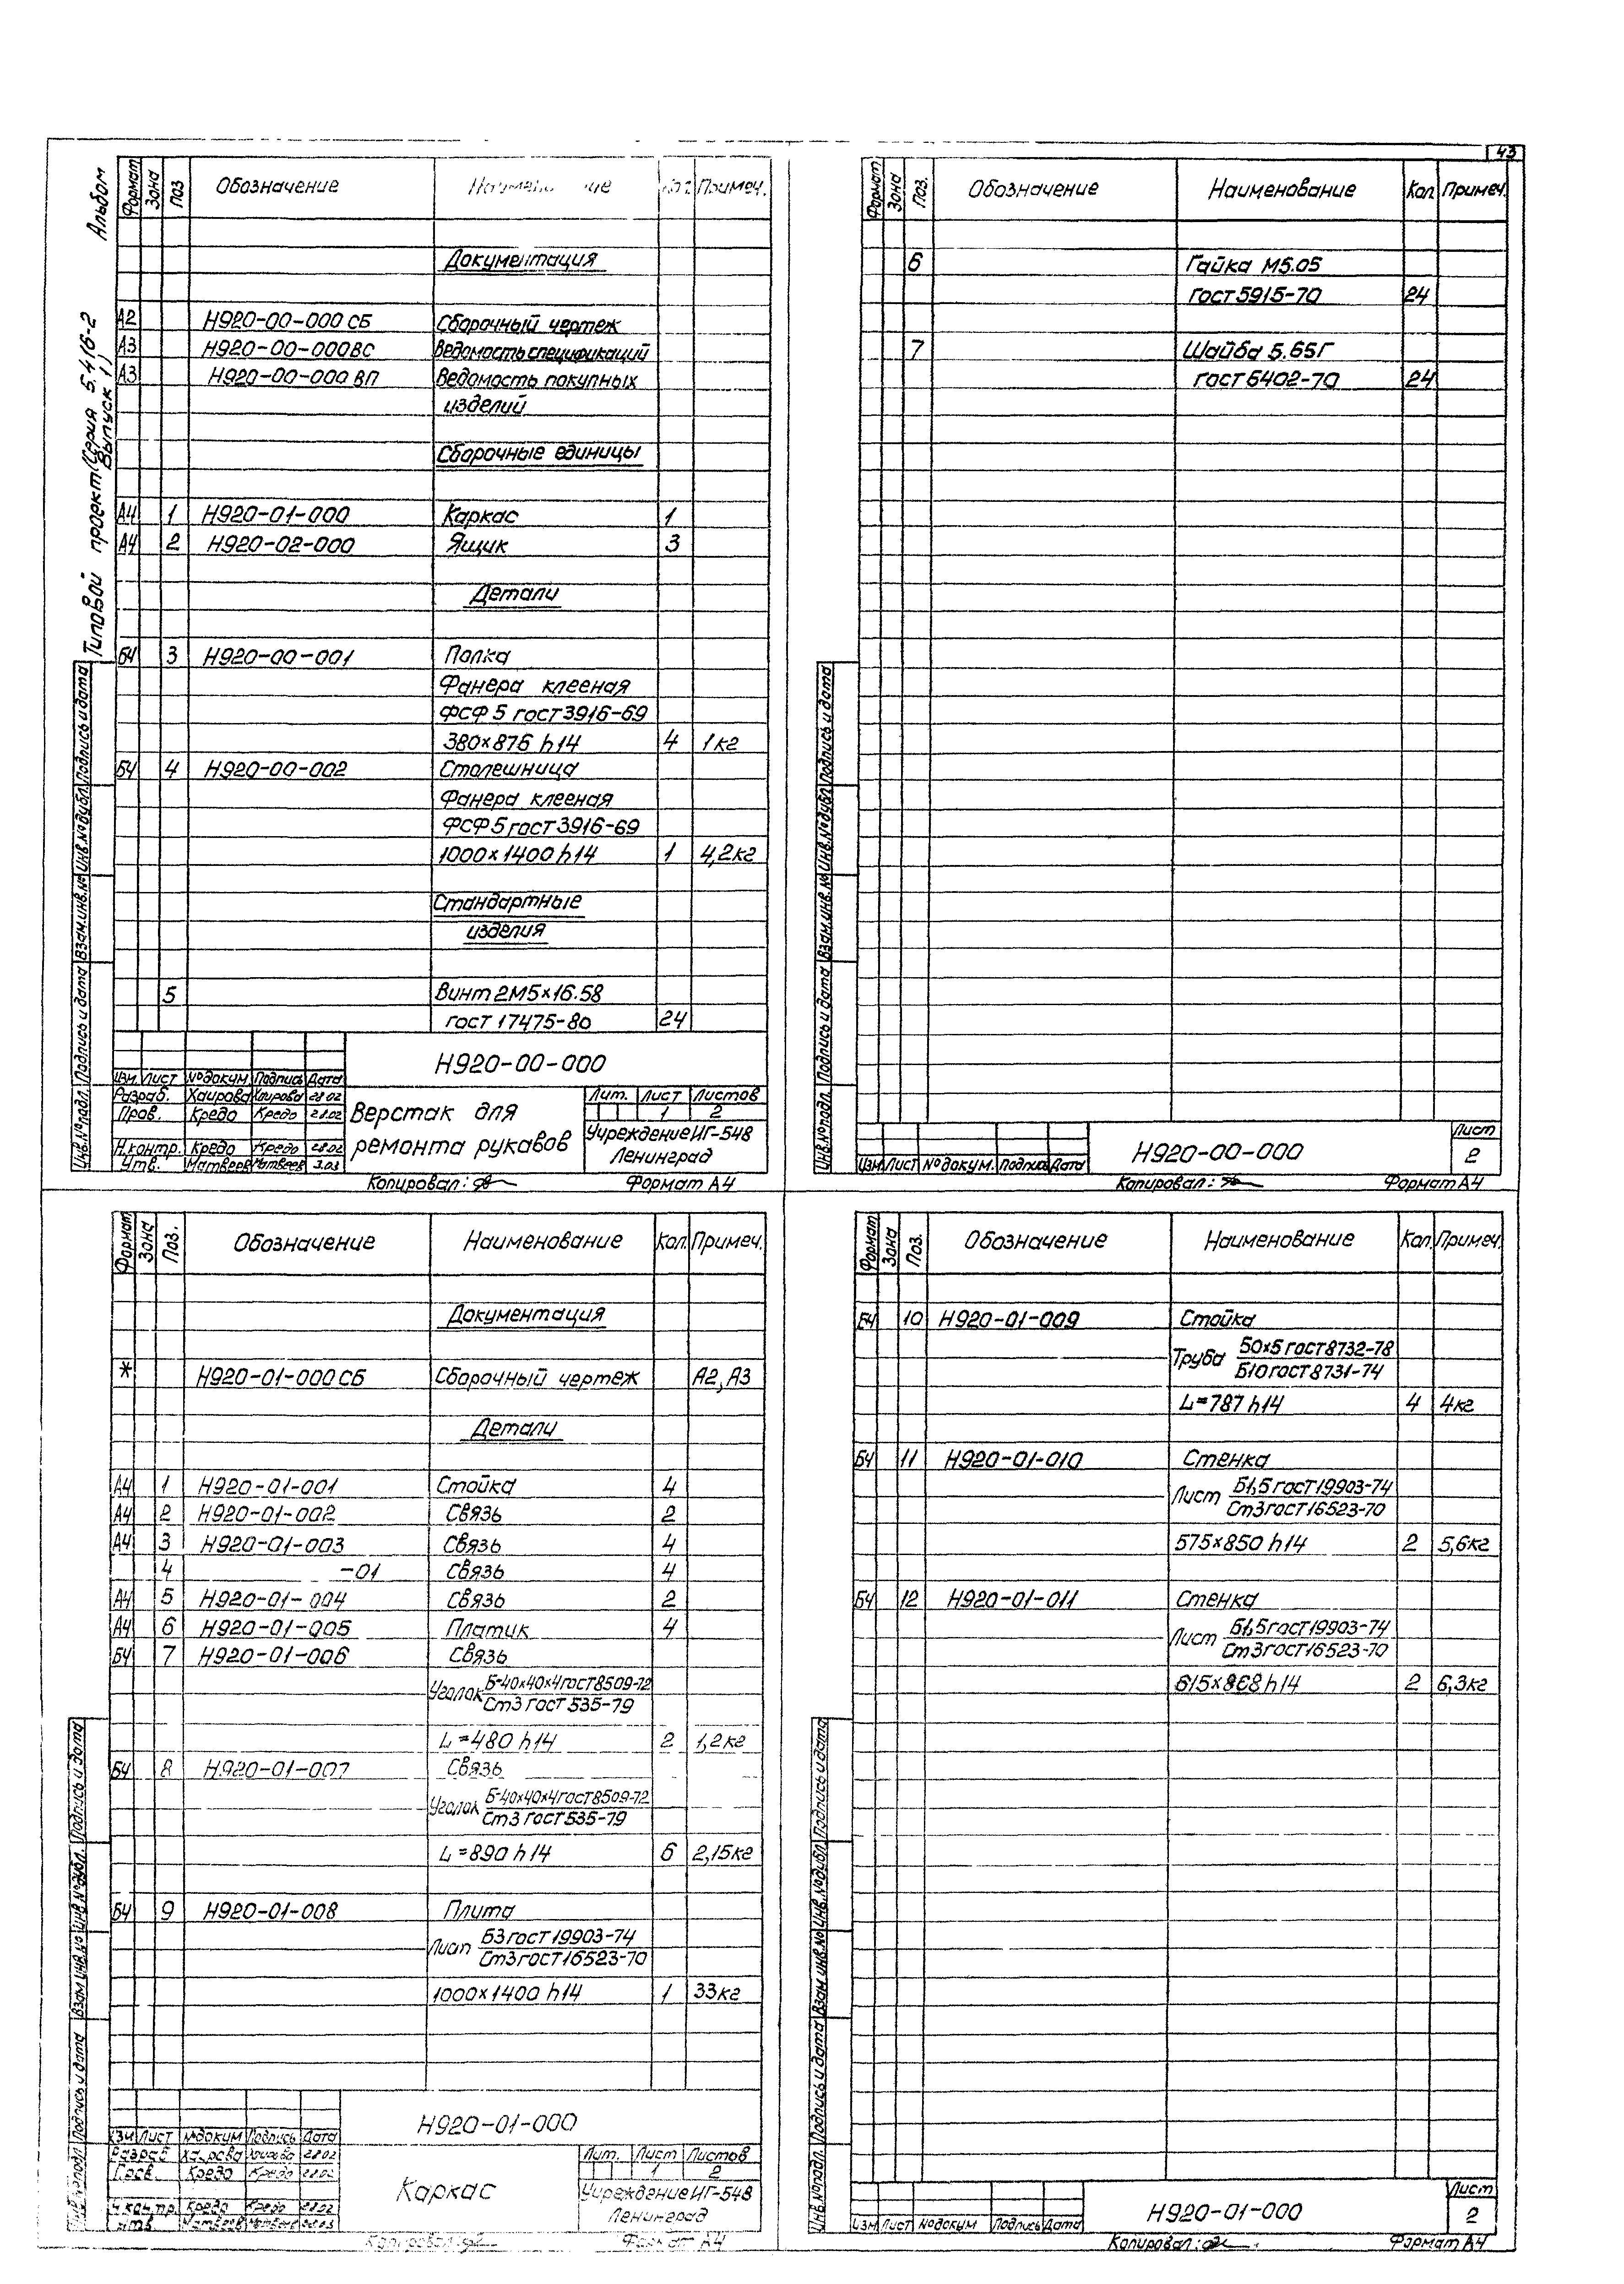 43
Альбом
Типовой проект (Серия 5.416-2
Выпуск 1)
Формат Зона Поз Обозначение Примеч.
Документация
А2 Н920-00-000 СБ Сборочный чертеж
А3 Н920-00-000 ВС Ведомость спецификаций
А3 Н920-00-000 ВП Ведомость покупных
изделий
Сборочные единицы
А4 1 Н920-01-000 Каркас 1
А4 2 Н920-02-000 Ящик 3
Детали
БЧ 3 Н920-00-001 Полка
Фанера клееная
ФСФ 5 гост 3916-69
380×876 h14 4 1кг
БЧ 4 Н920-00-002 Столешница
Фанера клееная
ФСФ 5 гост 3916-69
1000×1400 h14 1 4,2кг
Стандартные
изделия
5 Винт 2М5×16.58
гост 17475-80 24
Инв.№подл. Подпись и дата Взам.инв.№ Инв.№дубл. Подпись и дата
Н920-00-000
Изм. Лист №докум. Подпись Дата
Разраб. Хаирова Хаирова 28.02
Пров. Кредо Кредо 28.02
Н.контр. Кредо Кредо 28.02
Утв. Матвеев Матвеев 3.03
Верстак для
ремонта рукавов
Лит. Лист Листов
1 2
Учреждение ИГ-548
Ленинград
Копировал: Формат А4
Формат Зона Поз. Обозначение Наименование Кол. Примеч.
6 Гайка М5.05
гост 5915-70 24
7 Шайба 5.65Г
гост 6402-70 24
Инв.№подл. Подпись и дата Взам.инв.№ Инв.№дубл. Подпись и дата
Изм Лист №докум. Подпись Дата
Н920-00-000
Лист
2
Копировал: Формат А4
Формат Зона Поз. Обозначение Наименование Кол. Примеч.
Документация
* Н920-01-000 СБ Сборочный чертеж А2, А3
Детали
А4 1 Н920-01-001 Стойка 4
А4 2 Н920-01-002 Связь 2
А4 3 Н920-01-003 Связь 4
4 -01 Связь 4
А4 5 Н920-01-004 Связь 2
А4 6 Н920-01-005 Платик 4
БЧ 7 Н920-01-006 Связь
Уголок Б-40×40×4 гост 8509-72
Ст3 гост 535-79
L=480 h14 2 1,2кг
БЧ 8 Н920-01-007 Связь
Уголок Б-40×40×4 гост 8509-72
Ст3 гост 535-79
L=890 h14 6 2,15кг
БЧ 9 Н920-01-008 Плита
Лист Б3 гост 19903-74
Ст3 гост 16523-70
1000×1400 h14 1 33кг
Инв.№подл. Подпись и дата Взам инв.№ Инв.№дубл. Подпись и дата
Н920-01-000
Изм Лист №докум Подпись Дата
Разраб Хаирова Хаирова 28.02
Пров. Кредо Кредо 28.02
Н.контр. Кредо Кредо 28.02
Утв. Матвеев Матвеев
Каркас
Лит. Лист Листов
1 2
Учреждение ИГ-548
Ленинград
Копировал: Формат А4
Формат Зона Поз. Обозначение Наименование Кол. Примеч.
БЧ 10 Н920-01-009 Стойка
Труба 50×5 гост 8732-78
Б10 гост 8731-74
L=787 h14 4 4кг
БЧ 11 Н920-01-010 Стенка
Лист Б1,5 гост 19903-74
Ст3 гост 16523-70
575×850 h14 2 5,6кг
БЧ 12 Н920-01-011 Стенка
Лист Б1,5 гост 19903-74
Ст3 гост 16523-70
615×868 h14 2 6,3кг
Инв.№подл. Подпись и дата Взам инв.№ Инв.№дубл. Подпись и дата
Изм Лист №докум Подпись Дата
Н920-01-000
Лист
2
Копировал: Формат А4